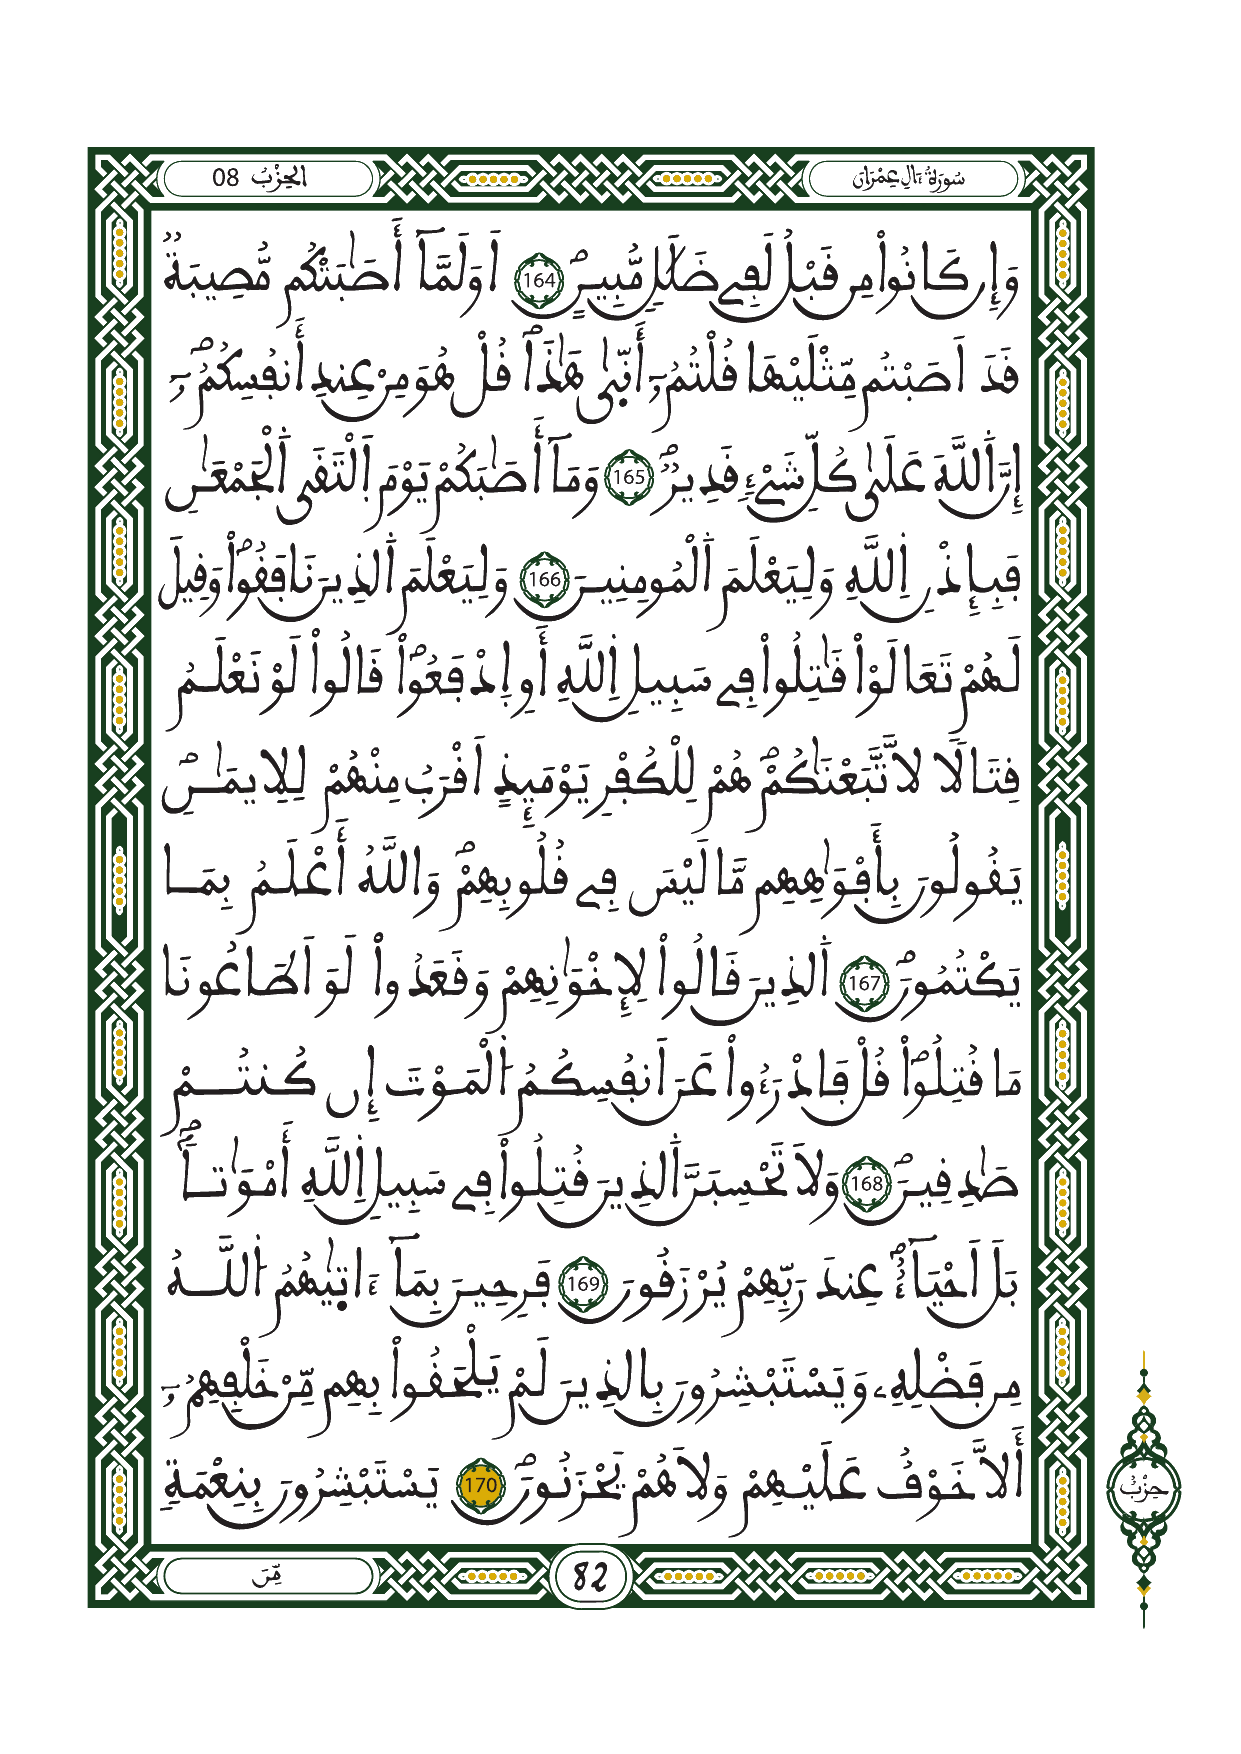 سُورَةُ ءَالِ عِمْرَان
الحِزْبُ 08
وَإِن كَانُواْ مِن قَبْلُ لَفِے ضَلَٰلٖ مُّبِينٍۖ 164 اَوَلَمَّآ أَصَٰبَتْكُم مُّصِيبَةٞ
قَدَ اَصَبْتُم مِّثْلَيْهَا قُلْتُمُۥٓ أَنّ۪يٰ هَٰذَاۖ قُلْ هُوَ مِنْ عِندِ أَنفُسِكُمُۥٓۖ
إِنَّ اَ۬للَّهَ عَلَىٰ كُلِّ شَےْءٖ قَدِيرٞۖ 165 وَمَآ أَصَٰبَكُمْ يَوْمَ اَ۪لْتَقَى اَ۬لْجَمْعَٰنِ
فَبِإِذْنِ اِ۬للَّهِ وَلِيَعْلَمَ اَ۬لْمُومِنِينَ 166 وَلِيَعْلَمَ اَ۬لذِينَ نَافَقُواْۖ وَقِيلَ
لَهُمْ تَعَالَوْاْ قَٰتِلُواْ فِے سَبِيلِ اِ۬للَّهِ أَوِ اِ۪دْفَعُواْۖ قَالُواْ لَوْ نَعْلَمُ
قِتَالاٗ لَّاتَّبَعْنَٰكُمْۖ هُمْ لِلْكُفْرِ يَوْمَئِذٍ اَقْرَبُ مِنْهُمْ لِلِايمَٰنِۖ
يَقُولُونَ بِأَفْوَٰهِهِم مَّا لَيْسَ فِے قُلُوبِهِمْۖ وَاللَّهُ أَعْلَمُ بِمَا
يَكْتُمُونَۖ 167 اَ۬لذِينَ قَالُواْ لِإِخْوَٰنِهِمْ وَقَعَدُواْ لَوَ اَطَاعُونَا
مَا قُتِلُواْۖ قُلْ فَادْرَءُواْ عَنَ اَنفُسِكُمُ اُ۬لْمَوْتَ إِن كُنتُمْ
صَٰدِقِينَۖ 168 وَلَا تَحْسِبَنَّ اَ۬لذِينَ قُتِلُواْ فِے سَبِيلِ اِ۬للَّهِ أَمْوَٰتاَۢۖ
بَلَ اَحْيَآءٌۖ عِندَ رَبِّهِمْ يُرْزَقُونَ 169 فَرِحِينَ بِمَآ ءَات۪يٰهُمُ اُ۬للَّهُ
مِن فَضْلِهِۦ وَيَسْتَبْشِرُونَ بِالذِينَ لَمْ يَلْحَقُواْ بِهِم مِّنْ خَلْفِهِمُۥٓ
أَلَّا خَوْفٌ عَلَيْهِمْ وَلَا هُمْ يَحْزَنُونَۖ 170 يَسْتَبْشِرُونَ بِنِعْمَةٖ
حِزْبُ
مِّنَ
82